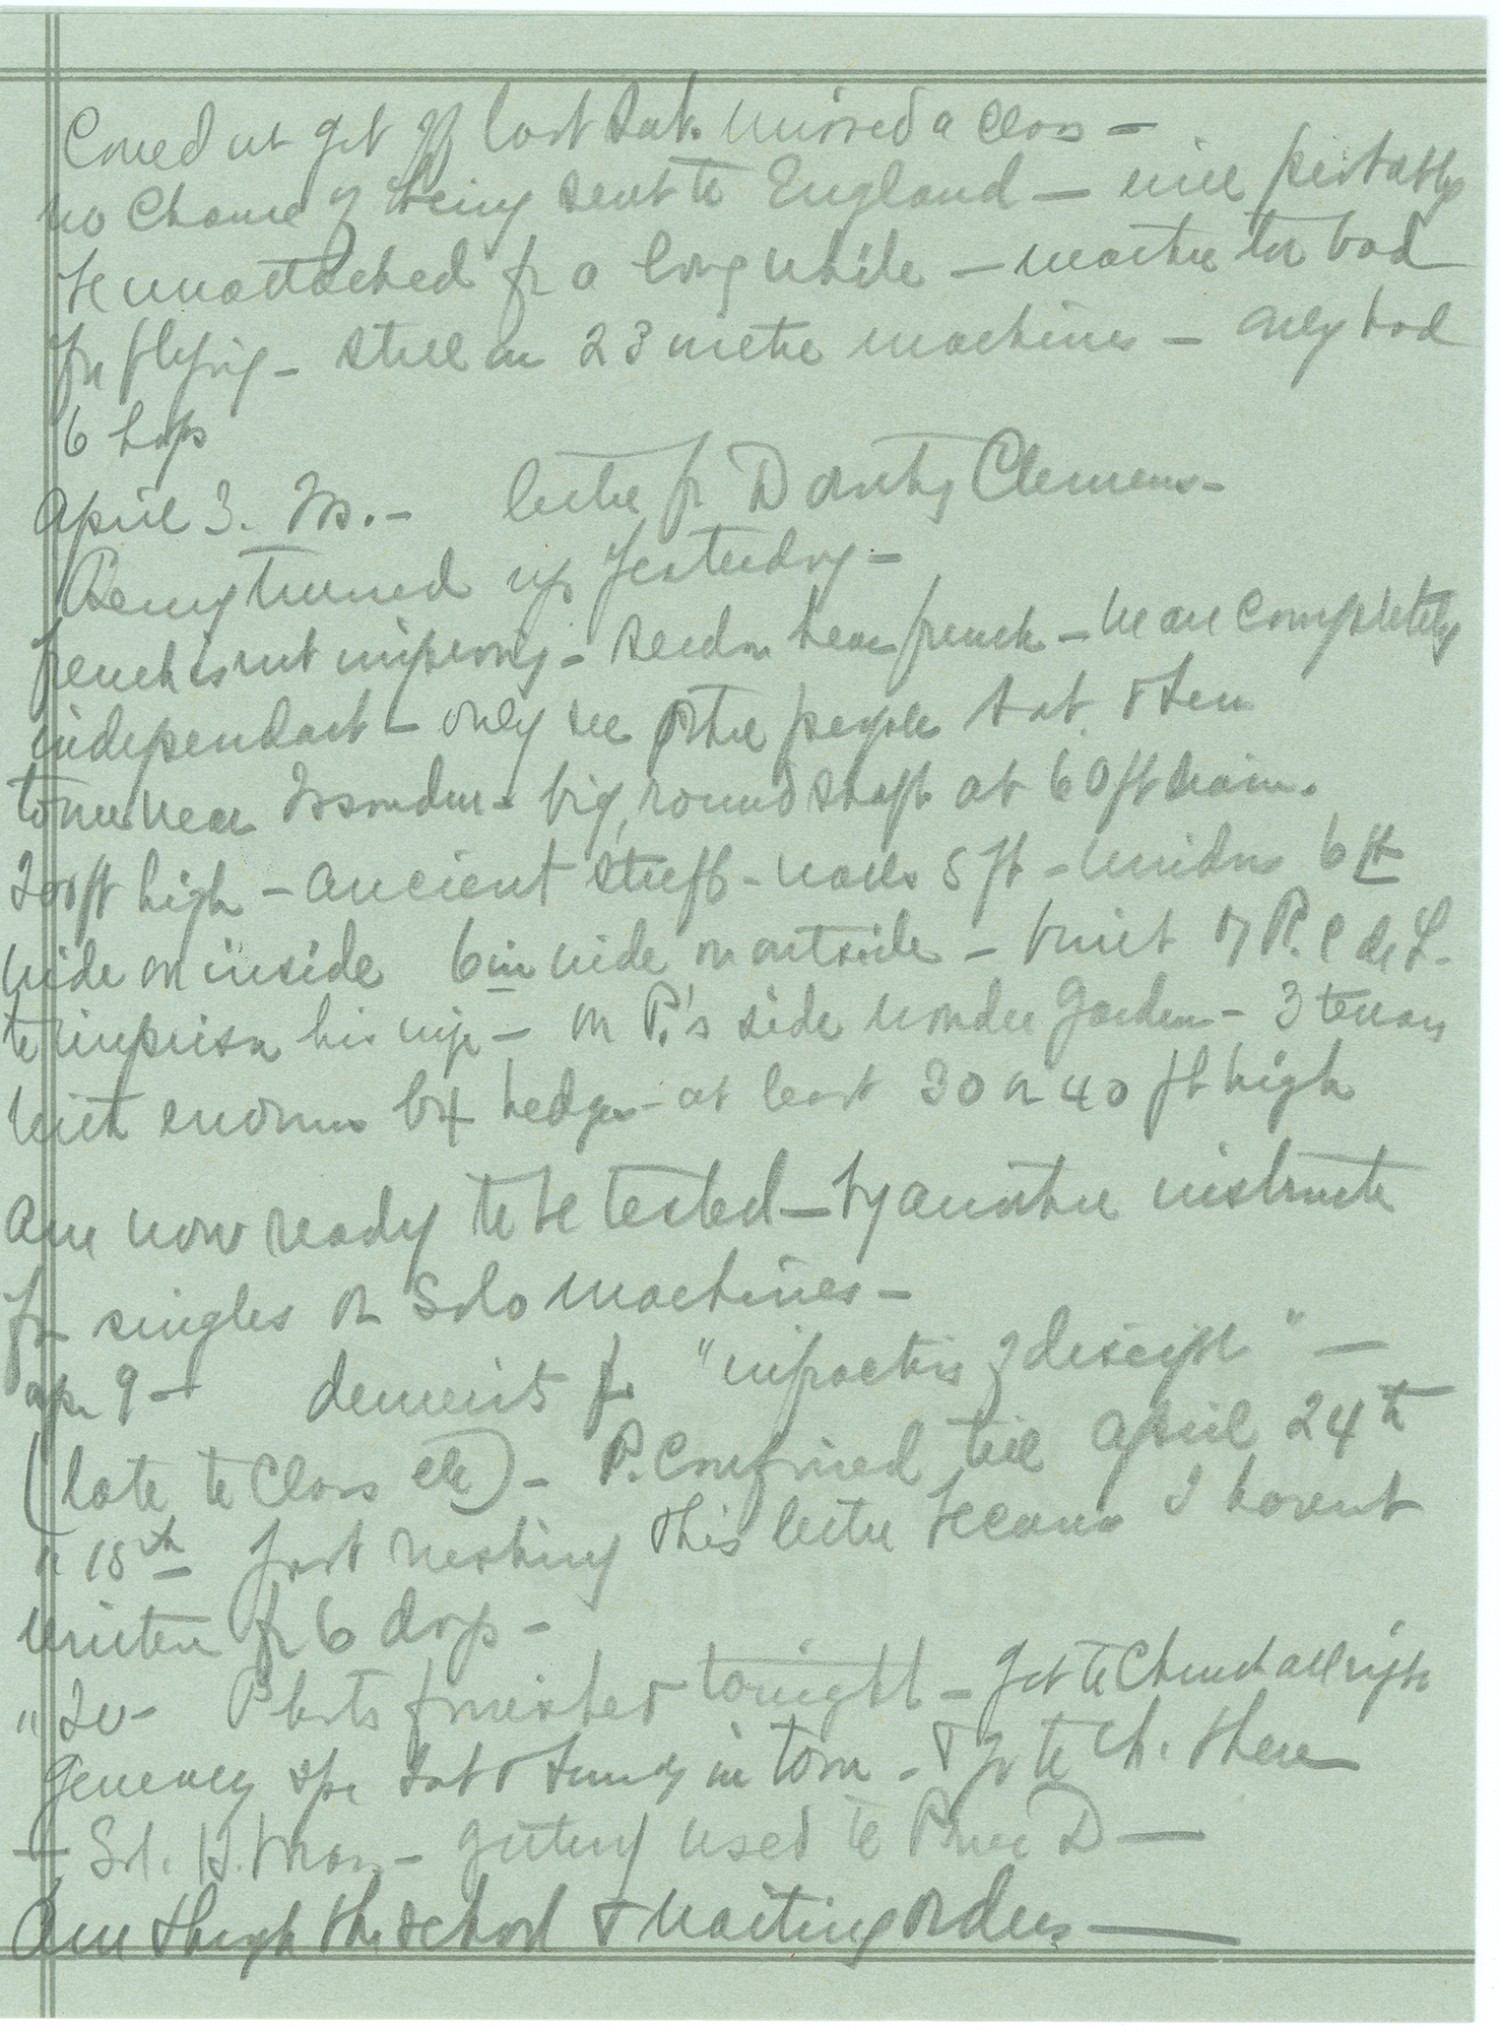 Could not get off last Sat. missed a class –
no chance of being sent to England – will probably
be unattached for a long while – weather too bad
for flying – still on 23 metre machines – only had
6 hops
April 3. Is. – letter fr Dorothy Clemens –
Being trued up yesterday –
french isnt improving – seldom hear french – We are completely
independant – only see other people Sat. & Sun
tower near Issoudun – big, round shaft at 60 ft diam.
200 ft high – ancient stuff – walls 5 ft – windows 6 ft
wide on inside 6 in wide on outside – built by P. C de L.
to imprison his wife – on P.'s side wonder garden – 3 terraces
with enormous box hedges – at least 30 or 40 ft high
Am now ready to be tested – by another instructor
for singles or Solo machines –
ap. 9 – demerits for "infraction of discipl" –
(late to class etc) – P. confined till April 24th
" 18th Just rushing this letter because I havent
written for 6 days –
" 20 – finished tonight – get to Church all right
Generally spe Sat & Sunday in town – & go to ch. there
– Sol. H. Mass – getting used to
Am through the school & waiting orders –